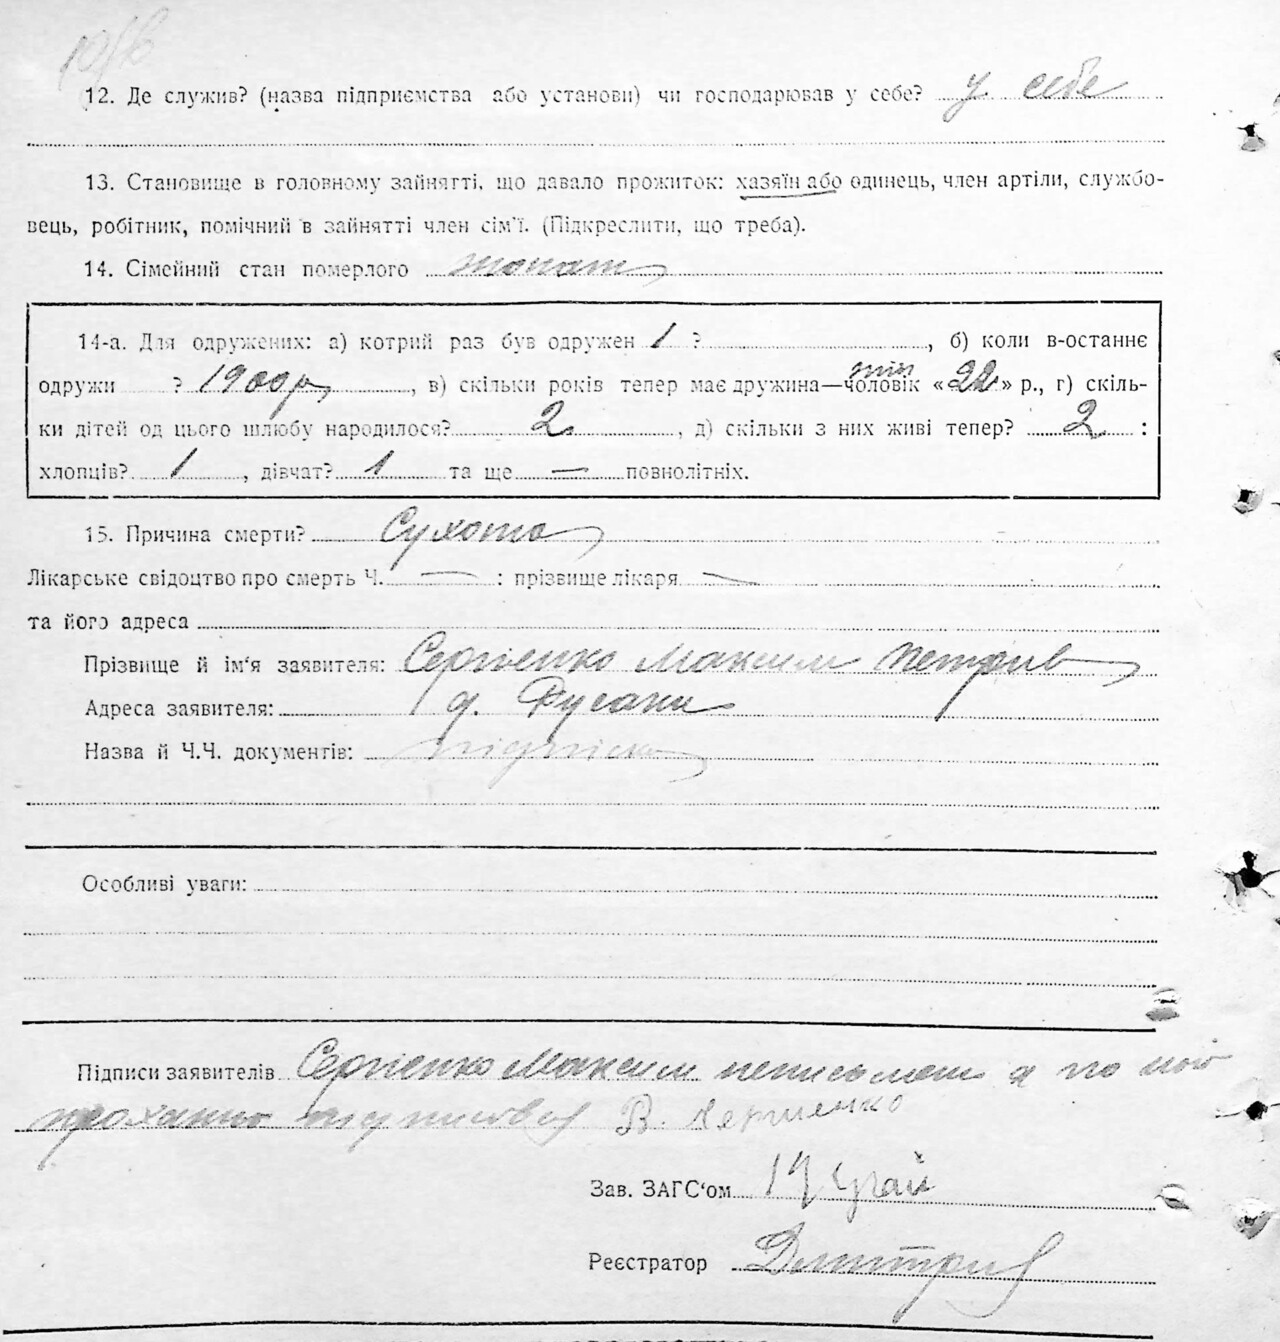 12. Де служив? (назва підприємства або установи) чи господарював у себе? у себе
13. Становище в головному зайнятті, що давало прожиток: хазяїн або одинець, член артіли, службо-
вець, робітник, помічний в зайнятті член сім'ї. (Підкреслити, що треба).
14. Сімейний стан померлого жонат
14-а. Для одружених: а) котрий раз був одружен 1 ?, б) коли в-останнє
одружи ? 1900р, в) скільки років тепер має дружина—чоловік «22» р., г) скіль-
ки дітей од цього шлюбу народилося? 2, д) скільки з них живі тепер? 2 :
хлопців? 1, дівчат? 1 та ще — повнолітніх.
15. Причина смерти? Сухота
Лікарське свідоцтво про смерть Ч. — : прізвище лікаря —
та його адреса
Прізвище й ім'я заявителя: Сергієнко Максим Петрів
Адреса заявителя: Фусани
Назва й Ч.Ч. документів: підписка
Особливі уваги:
Підписи заявителів Сергієнко Максим неписьмен а по його
проханню підписався В.
Зав. ЗАГС'ом
Реєстратор Дмитрів